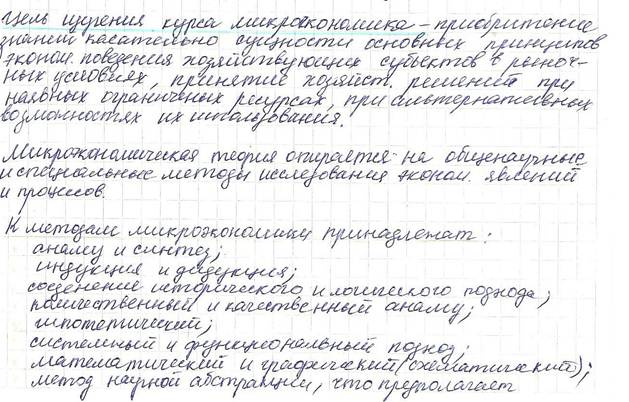 Цель изучения курса микроэкономика – приобритение
знаний касательно сущности основных принципов
эконом. поведения хозяйствующих субъектов в рыноч-
ных условиях, принятие хозяйст. решений при
наявных ограниченых ресурсах, при альтернативных
возможностях их использования.
Микроэкономическая теория опирается на общенаучные
и специальные методы исследования эконом. явлений
и процессов.
К методам микроэкономики принадлежат:
анализ и синтез;
индукция и дедукция;
соеденение исторического и логического подхода;
количественный и качественный анализ;
гипотетический;
системный и функциональный подход;
математический и графический (схематический);
метод научной абстракции, что предполагает